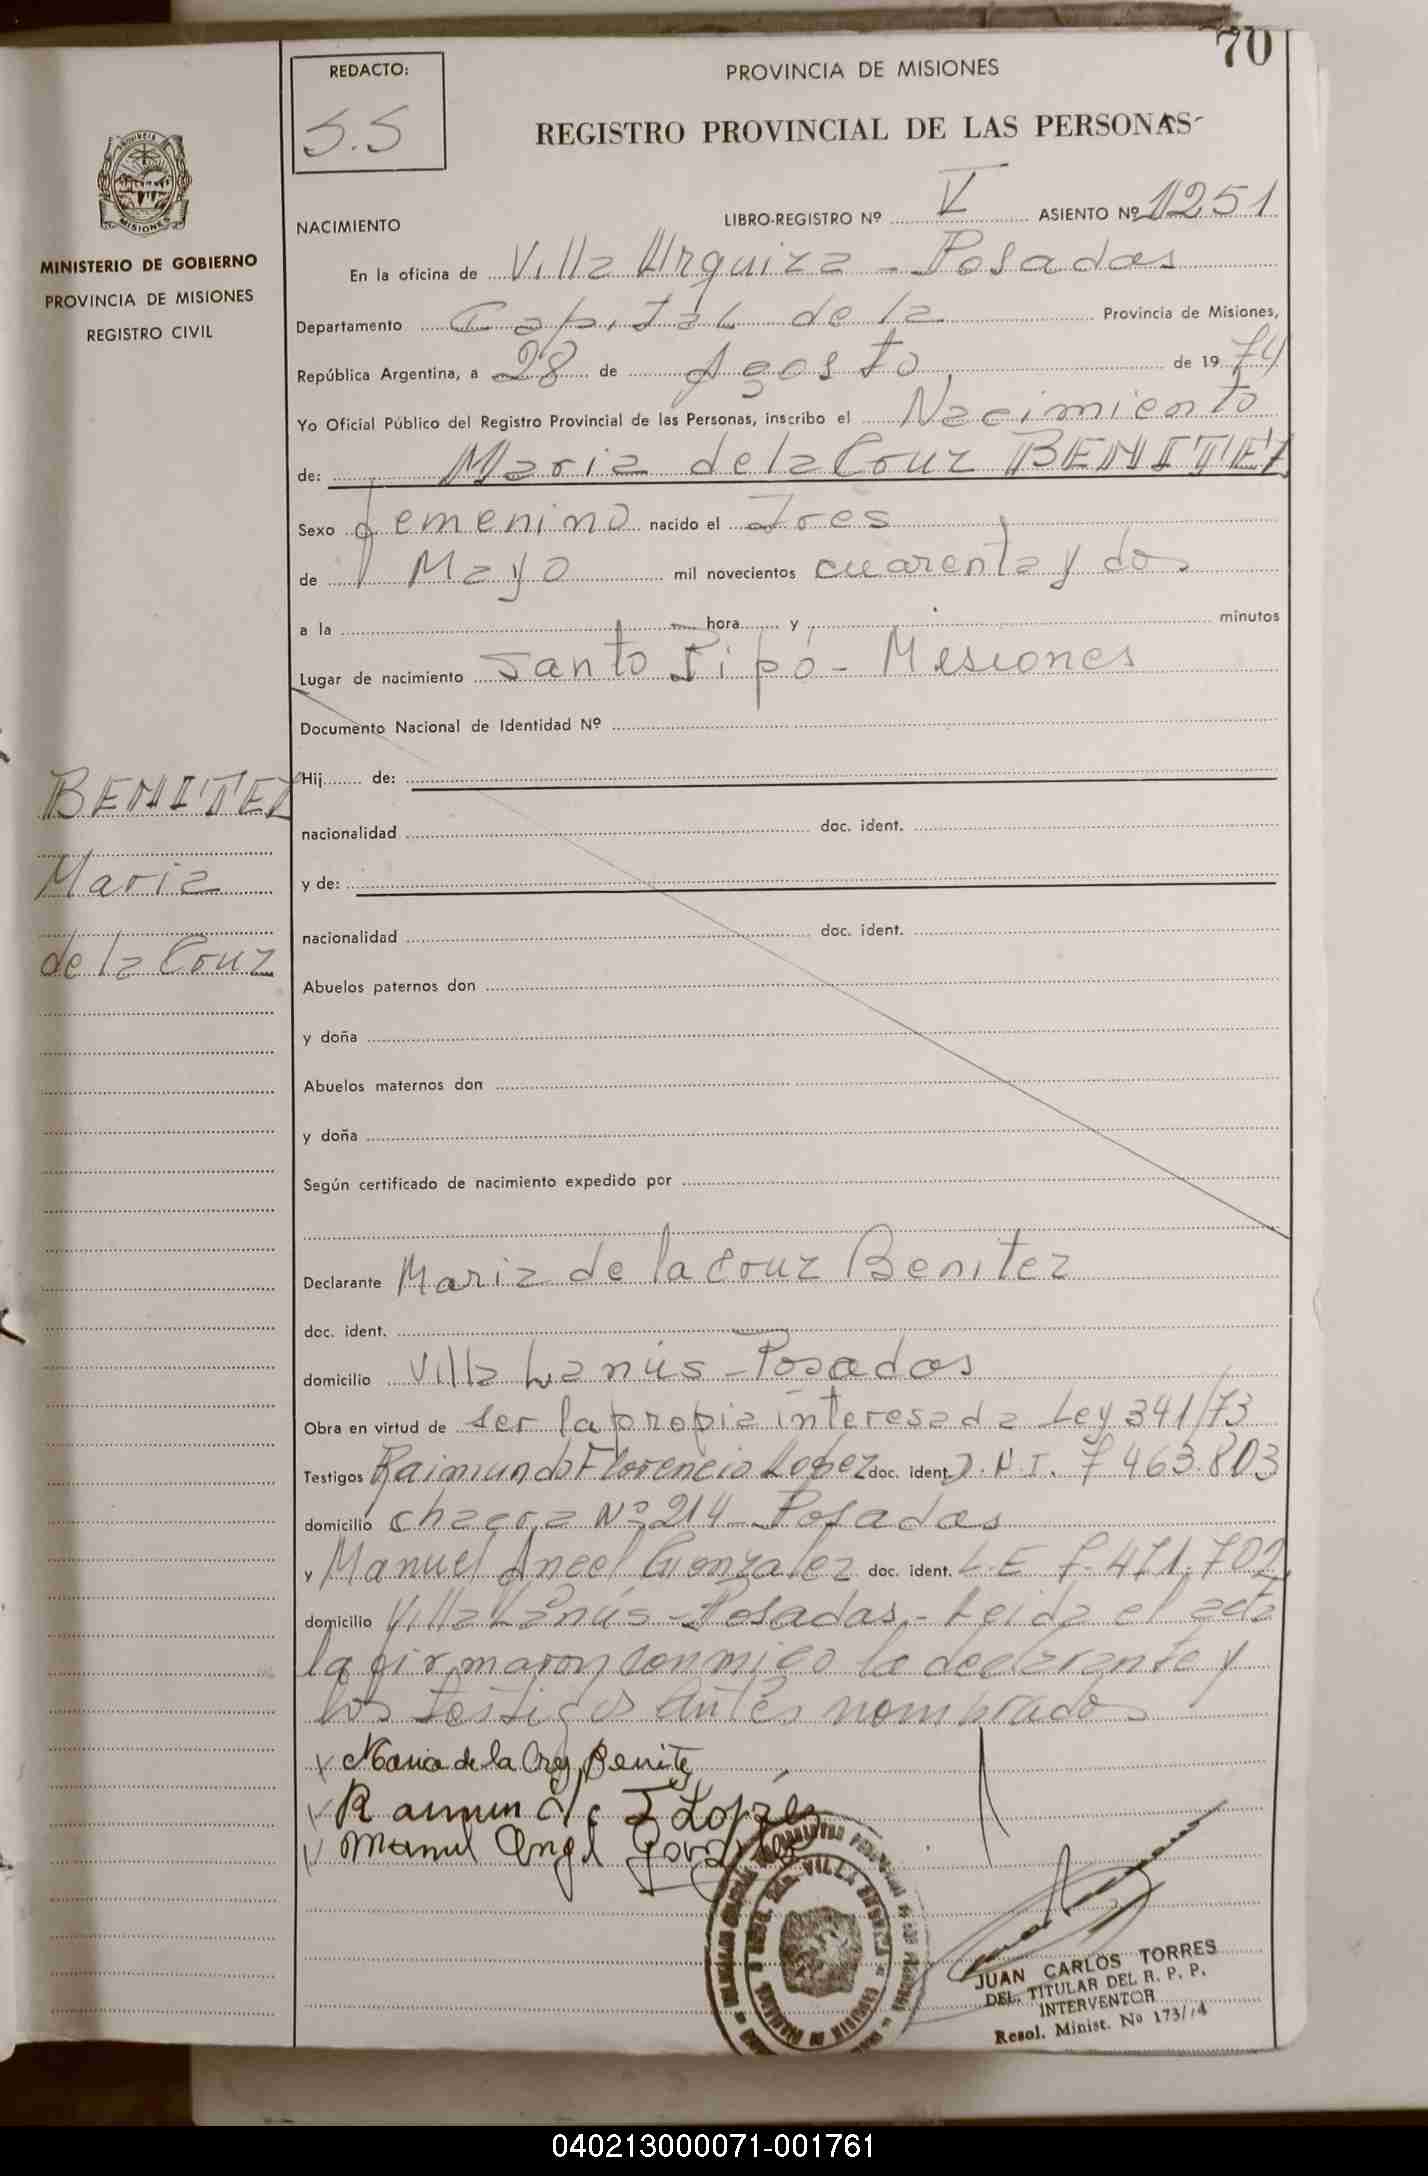 70
REDACTO:
S.S
PROVINCIA DE MISIONES
REGISTRO PROVINCIAL DE LAS PERSONAS
MISIONES
MINISTERIO DE GOBIERNO
PROVINCIA DE MISIONES
REGISTRO CIVIL
NACIMIENTO LIBRO-REGISTRO Nº V ASIENTO Nº 1251
En la oficina de Villa Urquiza - Posadas
Departamento Capital de la Provincia de Misiones,
República Argentina, a 28 de Agosto de 1974
Yo Oficial Público del Registro Provincial de las Personas, inscribo el Nacimiento
de: Maria de la Cruz BENITEZ
Sexo femenino nacido el Tres
de Mayo mil novecientos cuarenta y dos
a la hora y minutos
Lugar de nacimiento Santo Pipó - Misiones
Documento Nacional de Identidad Nº
BENITEZ
Maria
de la Cruz
Hij de:
nacionalidad doc. ident.
y de:
nacionalidad doc. ident.
Abuelos paternos don
y doña
Abuelos maternos don
y doña
Según certificado de nacimiento expedido por
Declarante Maria de la Cruz Benitez
doc. ident.
domicilio Villa Lanús - Posadas
Obra en virtud de ser la propia interesada Ley 341/73
Testigos Raimundo Florencio Lopez doc. ident. D.N.I. 7463.803
domicilio chacra Nº 214 - Posadas
y Manuel Angel Gonzalez doc. ident. L.E 7.471.702
domicilio Villa Lanús - Posadas - Leida el acta
la firmaron conmigo la declarante y
los testigos antes nombrados
Maria de la Cruz Benitez
Raimundo F Lopez
Manuel Angel Gonzalez
JUAN CARLOS TORRES
DEL. TITULAR DEL R. P. P.
INTERVENTOR
Resol. Minist. Nº 173/74
040213000071-001761